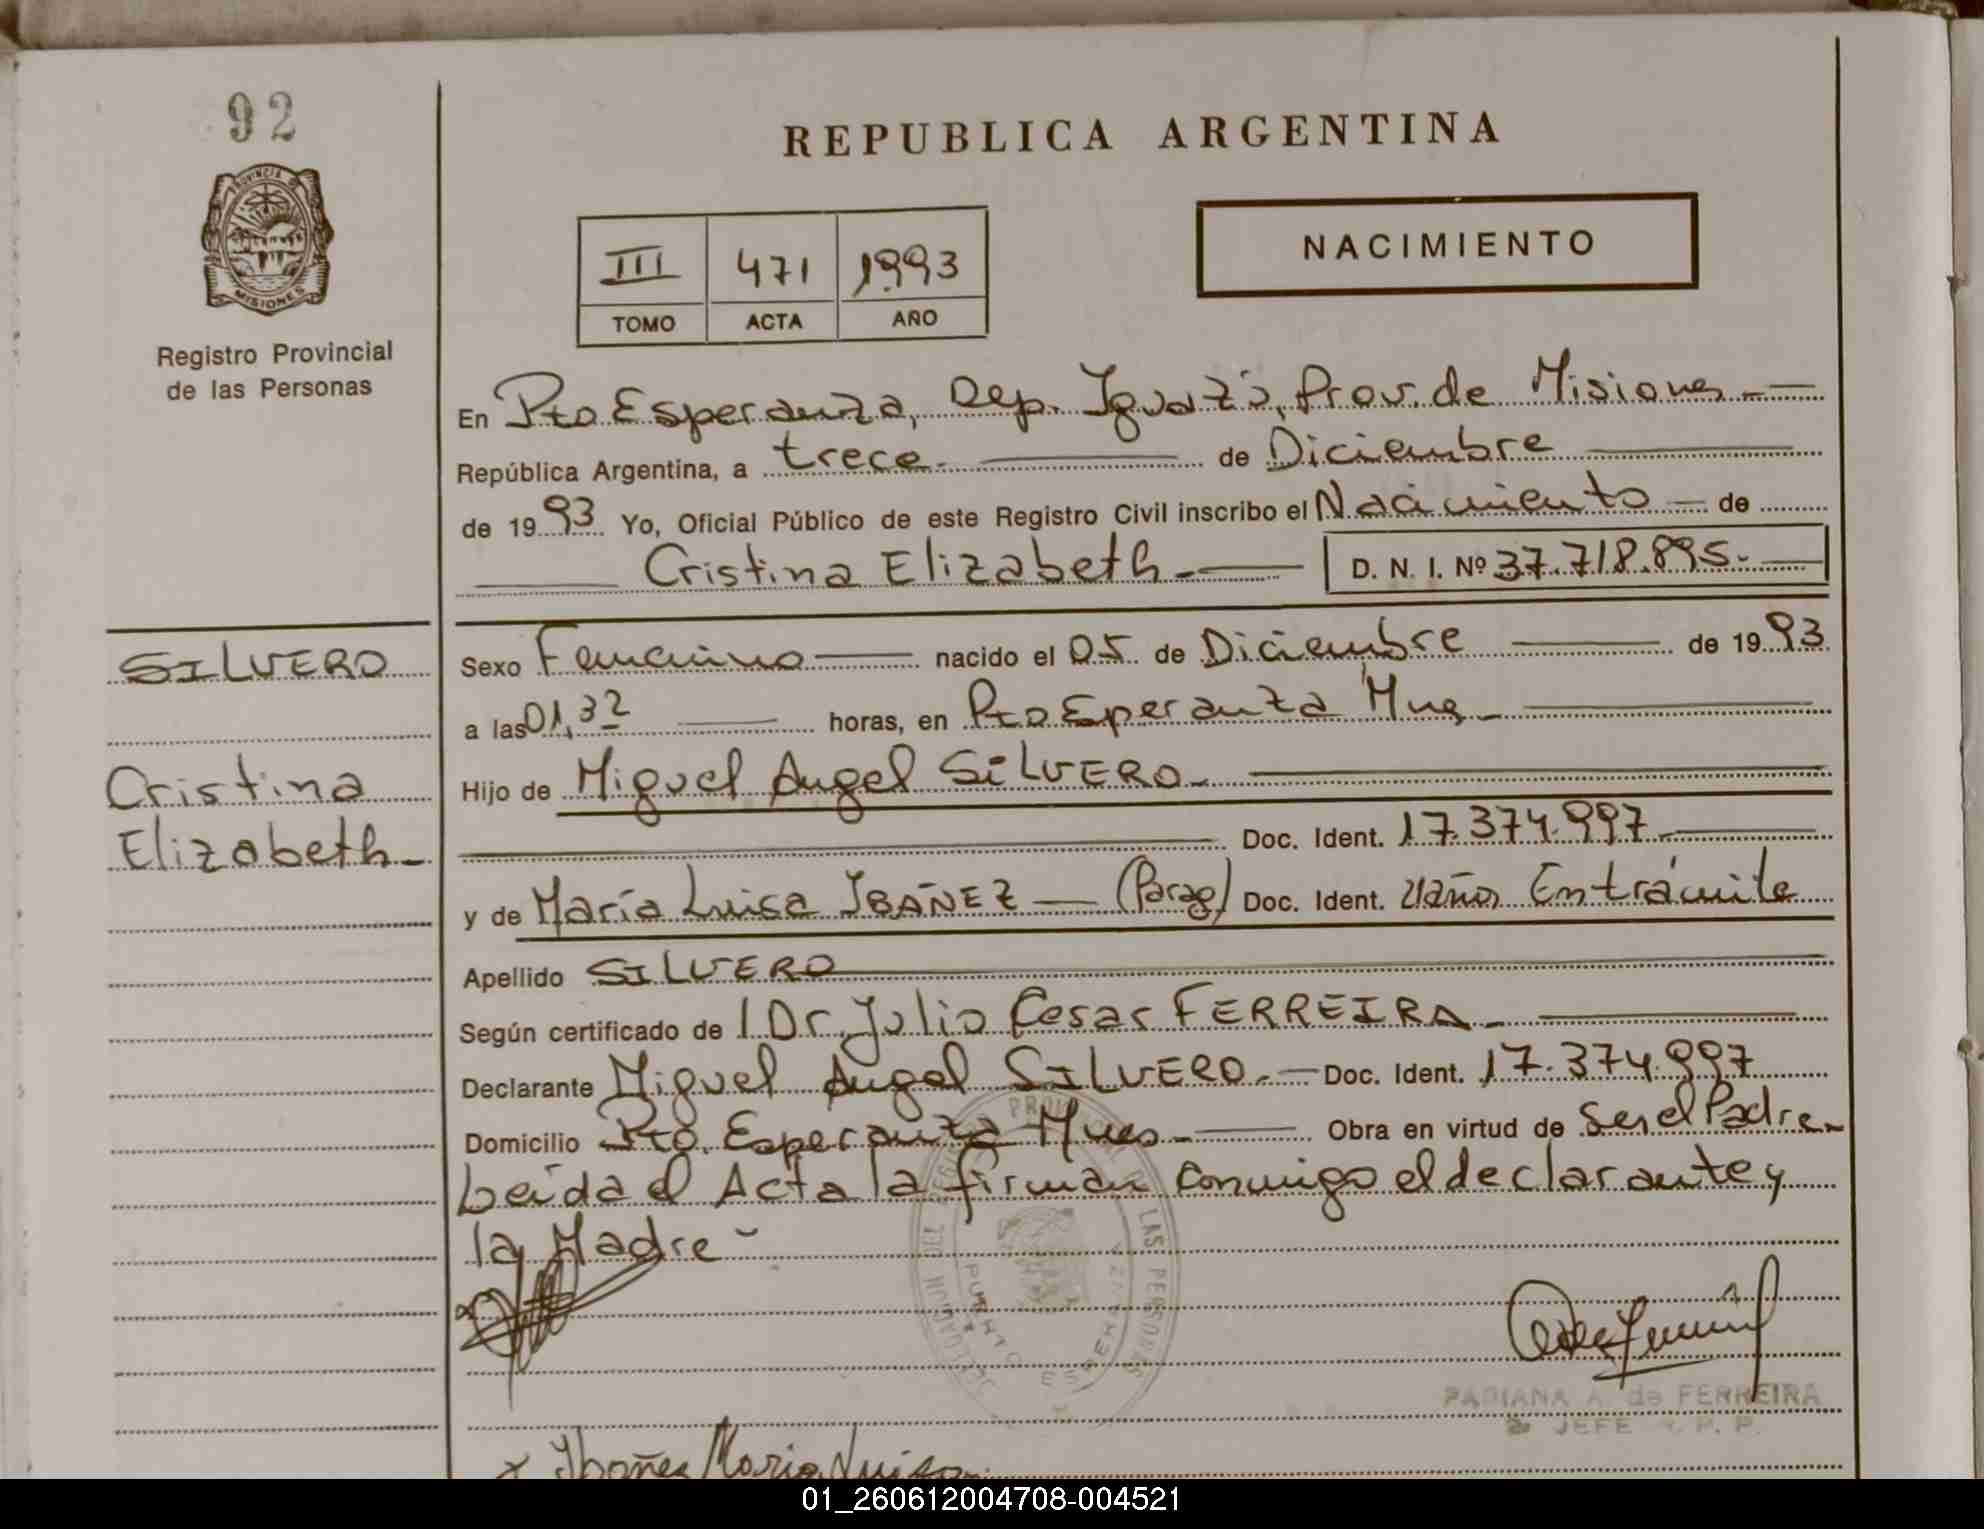 92
PROVINCIA DE
MISIONES
Registro Provincial
de las Personas
REPUBLICA ARGENTINA
NACIMIENTO
III 471 1993
TOMO ACTA AÑO
En Pto Esperanza, Dep. Iguazú, Prov. de Misiones
República Argentina, a trece de Diciembre
de 1993 Yo, Oficial Público de este Registro Civil inscribo el Nacimiento de
Cristina Elizabeth D. N. I. Nº 37.718.895
SILVERO
Cristina
Elizabeth
Sexo Femenino nacido el 05 de Diciembre de 1993
a las 01,32 horas, en Pto Esperanza Mnes
Hijo de Miguel Angel SILVERO
Doc. Ident. 17.374.997
y de María Luisa IBAÑEZ (Parag) Doc. Ident. años En trámite
Apellido SILVERO
Según certificado de Dr. Julio Cesar FERREIRA
Declarante Miguel Angel SILVERO Doc. Ident. 17.374.997
Domicilio Pto. Esperanza Mnes Obra en virtud de ser el Padre
Leída el Acta la firman conmigo el declarante y
la Madre
DEL REGISTRO PROVINCIAL DE LAS PERSONAS
PUERTO ESPERANZA
A. de FERREIRA
JEFE R. P. P.
x Ibañez Maria Luisa
01_260612004708-004521